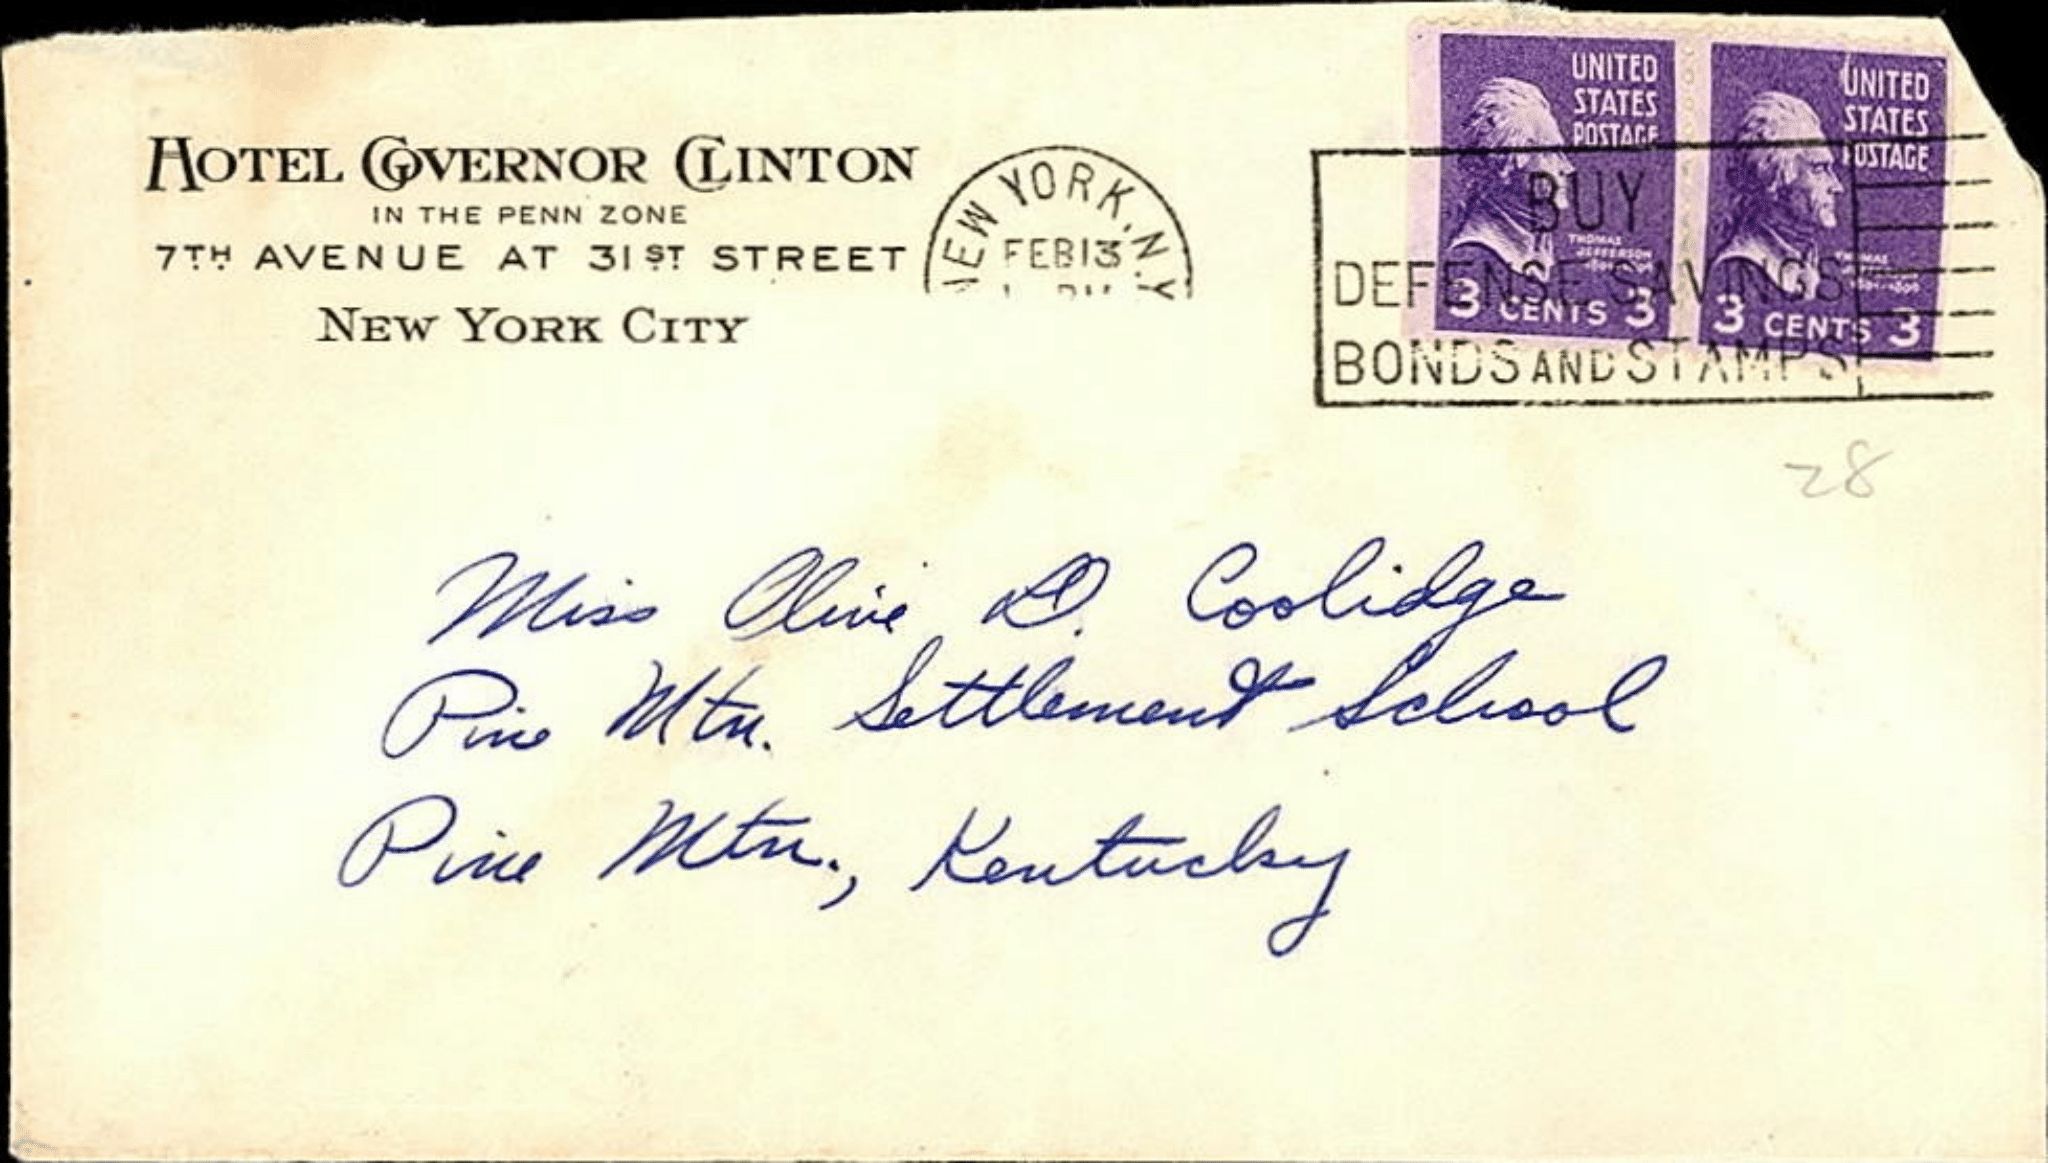 HOTEL GOVERNOR CLINTON
IN THE PENN ZONE
7TH AVENUE AT 31ST STREET
NEW YORK CITY
NEW YORK, N.Y.
FEB 13
UNITED
STATES
POSTAGE
THOMAS
JEFFERSON
3 CENTS 3
UNITED
STATES
POSTAGE
THOMAS
JEFFERSON
3 CENTS 3
BUY
DEFENSE SAVINGS
BONDS AND STAMPS
28
Miss Olive D. Coolidge
Pine Mtn. Settlement School
Pine Mtn., Kentucky